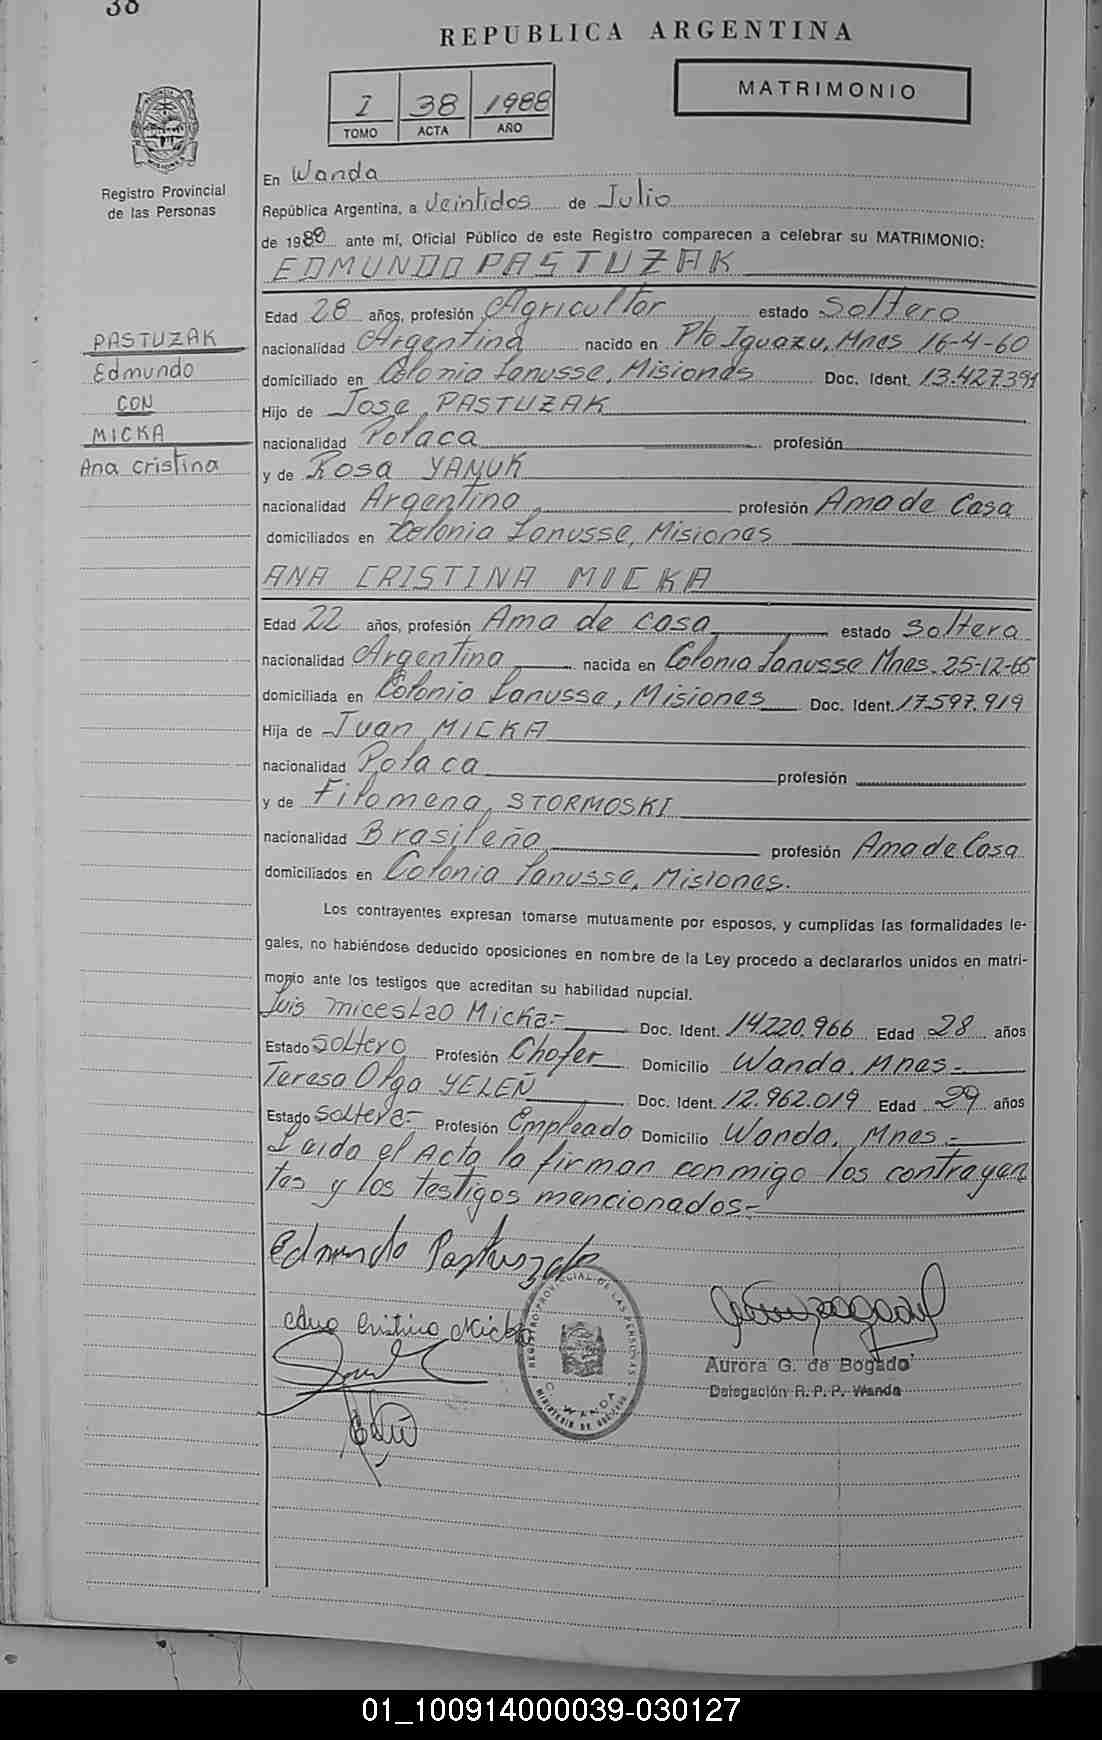 38
REPUBLICA ARGENTINA
I 38 1988
TOMO ACTA AÑO
MATRIMONIO
Registro Provincial
de las Personas
En Wanda
República Argentina, a veintidos de Julio
de 1988 ante mí, Oficial Público de este Registro comparecen a celebrar su MATRIMONIO:
EDMUNDO PASTUZAK
Edad 28 años, profesión Agricultor estado Soltero
nacionalidad Argentina nacido en Pto Iguazu, Mnes 16-4-60
domiciliado en Colonia Lanusse, Misiones Doc. Ident. 13.427.391
Hijo de Jose, PASTUZAK
nacionalidad Polaca profesión
y de Rosa YAMUK
nacionalidad Argentina profesión Ama de Casa
domiciliados en Colonia Lanusse, Misiones
PASTUZAK
Edmundo
CON
MICKA
Ana cristina
ANA CRISTINA MICKA
Edad 22 años, profesión Ama de casa estado Soltera
nacionalidad Argentina nacida en Colonia Lanusse Mnes. 25-12-65
domiciliada en Colonia Lanusse, Misiones Doc. Ident. 17.597.919
Hija de Juan, MICKA
nacionalidad Polaca profesión
y de Filomena, STORMOSKI
nacionalidad Brasileña profesión Ama de Casa
domiciliados en Colonia Lanusse, Misiones.
Los contrayentes expresan tomarse mutuamente por esposos, y cumplidas las formalidades le-
gales, no habiéndose deducido oposiciones en nombre de la Ley procedo a declararlos unidos en matri-
monio ante los testigos que acreditan su habilidad nupcial.
Luis miceslao Micka.- Doc. Ident. 14.220.966 Edad 28 años
Estado Soltero Profesión Chofer Domicilio Wanda. Mnes.-
Teresa Olga YELEÑ Doc. Ident. 12.962.019 Edad 29 años
Estado Soltera.- Profesión Empleada Domicilio Wanda, Mnes.-
Leida el Acta la firman conmigo los contrayen
tes y los testigos mencionados.-
Edmundo Pastuszak
Ana Cristina Micka
REGISTRO PROVINCIAL DE LAS PERSONAS
WANDA
MINISTERIO DE GOBIERNO
Aurora G. de Bogado
Delegación R. P. P. Wanda
01_100914000039-030127